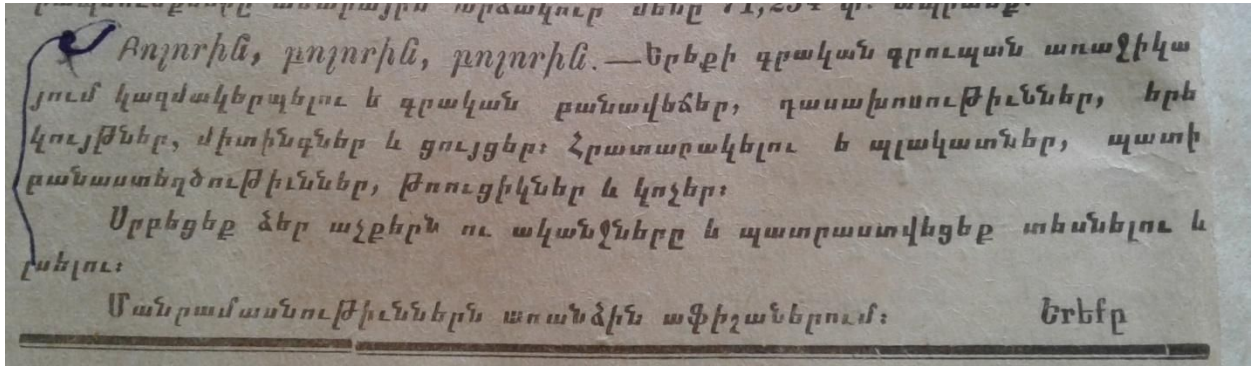 Բոլորին, բոլորին, բոլորին.—Երեքի գրական գրուպան առաջիկա
յում կազմակերպելու է գրական բանավեճեր, դասախոսութիւններ, երե
կույթներ, միտինգներ և ցույցեր։ Հրատարակելու է պլակատներ, պատի
բանաստեղծութիւններ, թռուցիկներ և կոչեր։
Սրբեցեք ձեր աչքերն ու ականջները և պատրաստվեցեք տեսնելու և
լսելու։
Մանրամասնութիւններն առանձին աֆիշաներում։ Երեքը